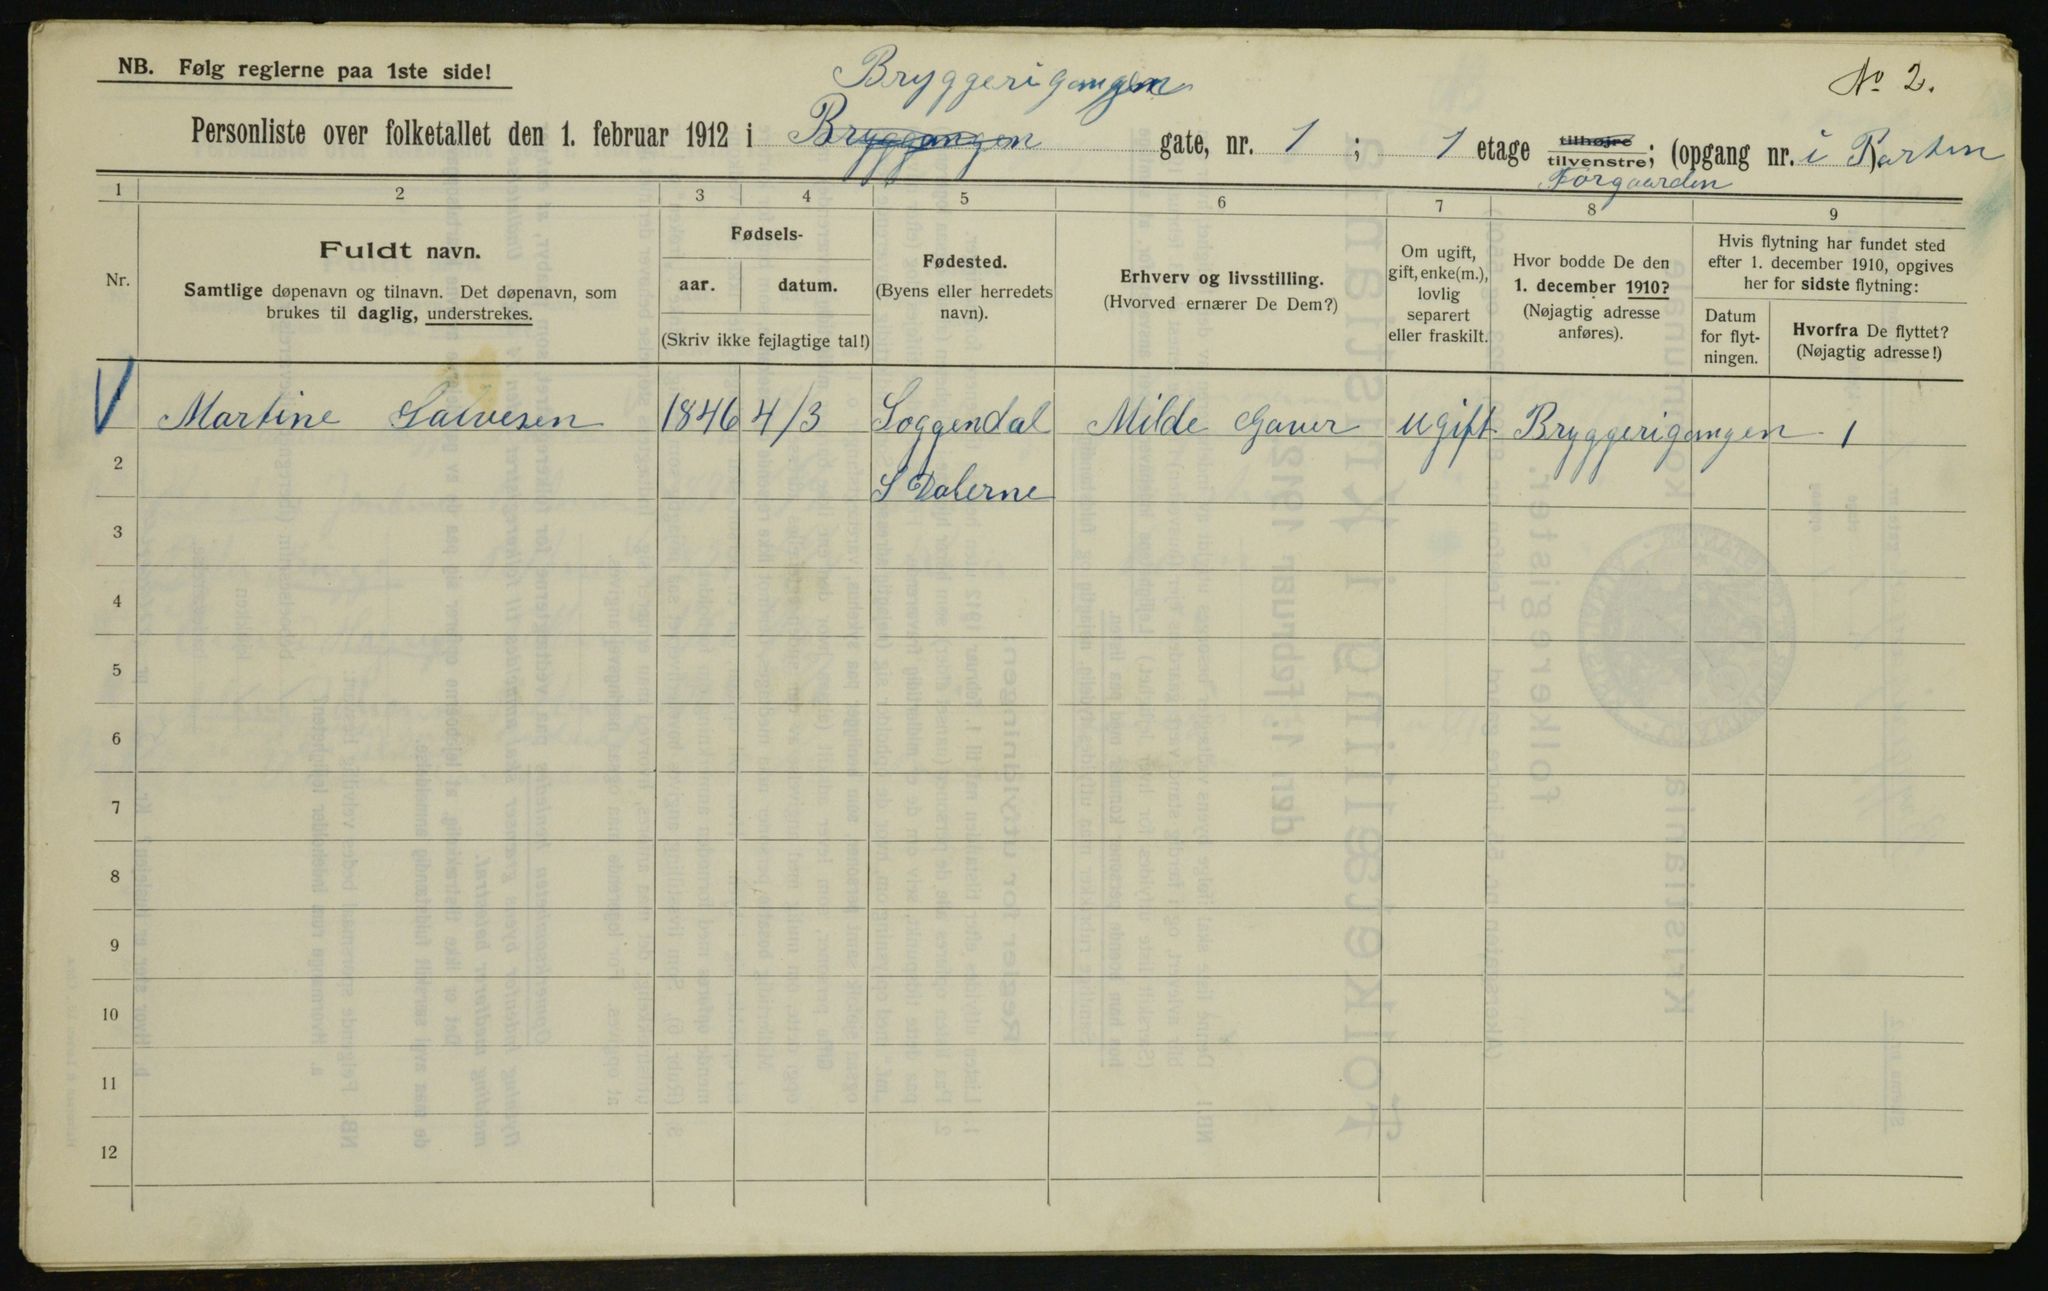 NB. Følg reglerne paa 1ste side!
Bryggerigangen
No 2.
Personliste over folketallet den 1. februar 1912 i Bryggangen gate, nr. 1 ; 1 etage tilhøjre tilvenstre; (opgang nr. i Porten
Forgaarden
1 2 3 4 5 6 7 8 9
Nr.
Fuldt navn.
Samtlige døpenavn og tilnavn. Det døpenavn, som
brukes til daglig, understrekes.
Fødsels-
aar. datum.
(Skriv ikke fejlagtige tal!)
Fødested.
(Byens eller herredets
navn).
Erhverv og livsstilling.
(Hvorved ernærer De Dem?)
Om ugift,
gift, enke(m.),
lovlig
separert
eller fraskilt.
Hvor bodde De den
1. december 1910?
(Nøjagtig adresse
anføres).
Hvis flytning har fundet sted
efter 1. december 1910, opgives
her for sidste flytning:
Datum
for flyt-
ningen.
Hvorfra De flyttet?
(Nøjagtig adresse!)
Martine Salvesen 1846 4/3 Soggendal Milde Gaver ugift Bryggerigangen 1
2 S Dalerne
3
4
5
6
7
8
9
10
11
12